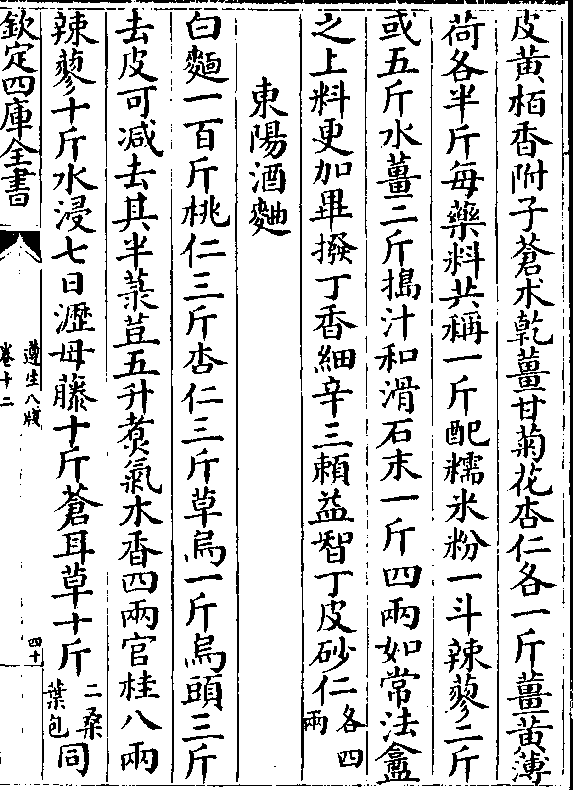 皮黃栢香附子蒼朮乾薑甘菊花杏仁各一斤薑黃薄
荷各半斤每藥料共稱一斤配糯米粉一斗辣蓼二斤
或五斤水薑二斤搗汁和滑石末一斤四兩如常法盦
之上料更加畢撥丁香細辛三頼益智丁皮砂仁各四兩
東陽酒麯
白麵一百斤桃仁三斤杏仁三斤草烏一斤烏頭三斤
去皮可減去其半菉荳五升煑氣水香四兩官桂八兩
辣蓼十斤水浸七日瀝母藤十斤蒼耳草十斤二桑葉包同
欽定四庫全書
遵生八牋
卷十二
四十